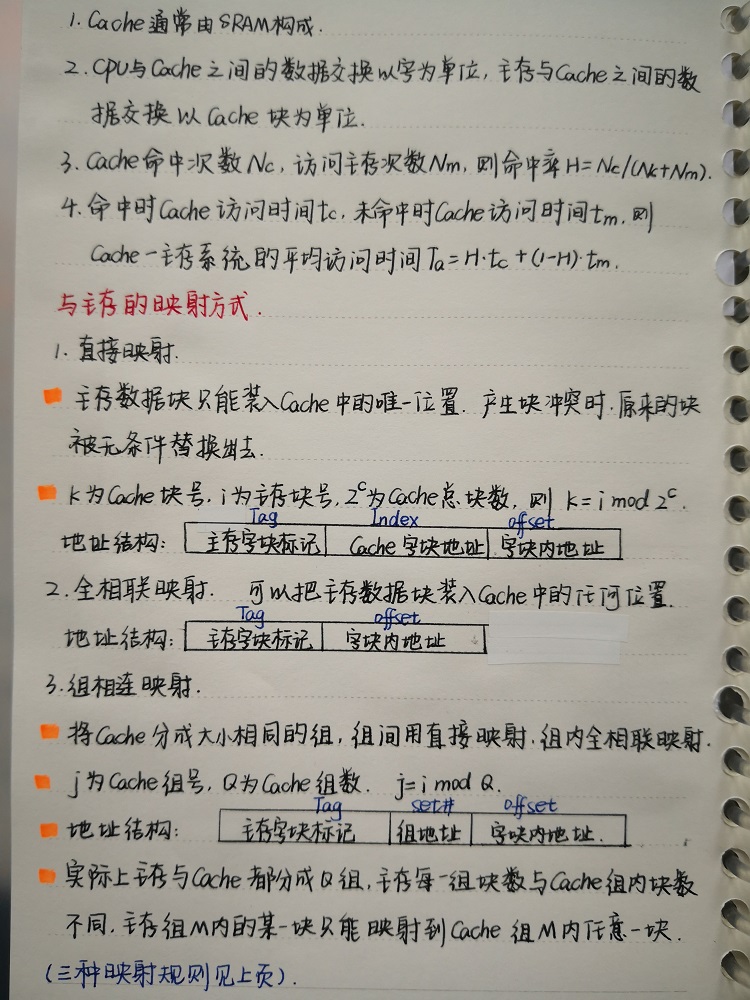 1. Cache通常由SRAM构成.
2. CPU与Cache之间的数据交换以字为单位, 主存与Cache之间的数
据交换以Cache块为单位.
3. Cache命中次数Nc, 访问主存次数Nm, 则命中率H=Nc/(Nc+Nm).
4. 命中时Cache访问时间tc, 未命中时Cache访问时间tm, 则
Cache-主存系统的平均访问时间Ta=H·tc+(1-H)·tm.
与主存的映射方式.
1. 直接映射.
主存数据块只能装入Cache中的唯一位置. 产生块冲突时, 原来的块
被无条件替换出去.
k为Cache块号, i为主存块号, 2^c为Cache总块数, 则 k=i mod 2^c.
Tag Index offset
地址结构: 主存字块标记 Cache字块地址 字块内地址
2. 全相联映射. 可以把主存数据块装入Cache中的任何位置.
Tag offset
地址结构: 主存字块标记 字块内地址
3. 组相连映射.
将Cache分成大小相同的组, 组间用直接映射, 组内全相联映射.
j为Cache组号, Q为Cache组数. j=i mod Q.
Tag set# offset
地址结构: 主存字块标记 组地址 字块内地址.
实际上主存与Cache都分成Q组, 主存每一组块数与Cache组内块数
不同, 主存组M内的某一块只能映射到Cache组M内任意一块.
(三种映射规则见上页).